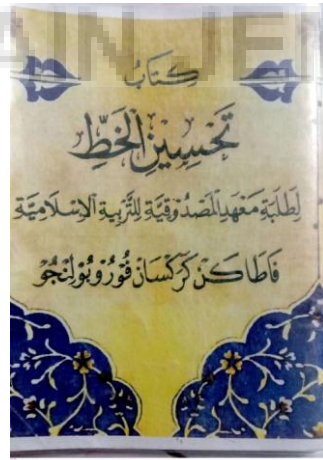 AIN JE
كِتَابُ
تَحْسِيْنِ الْخَطِّ
لِطَلَبَةِ مَعْهَدِ الْمَصْدُوْقِيَّةِ لِلتَّرْبِيَةِ الْاِسْلَامِيَّةِ
فَاطَاكَنْ كَرَكْسَانْ فُوْرُوْبُوْلِنْجُوْ